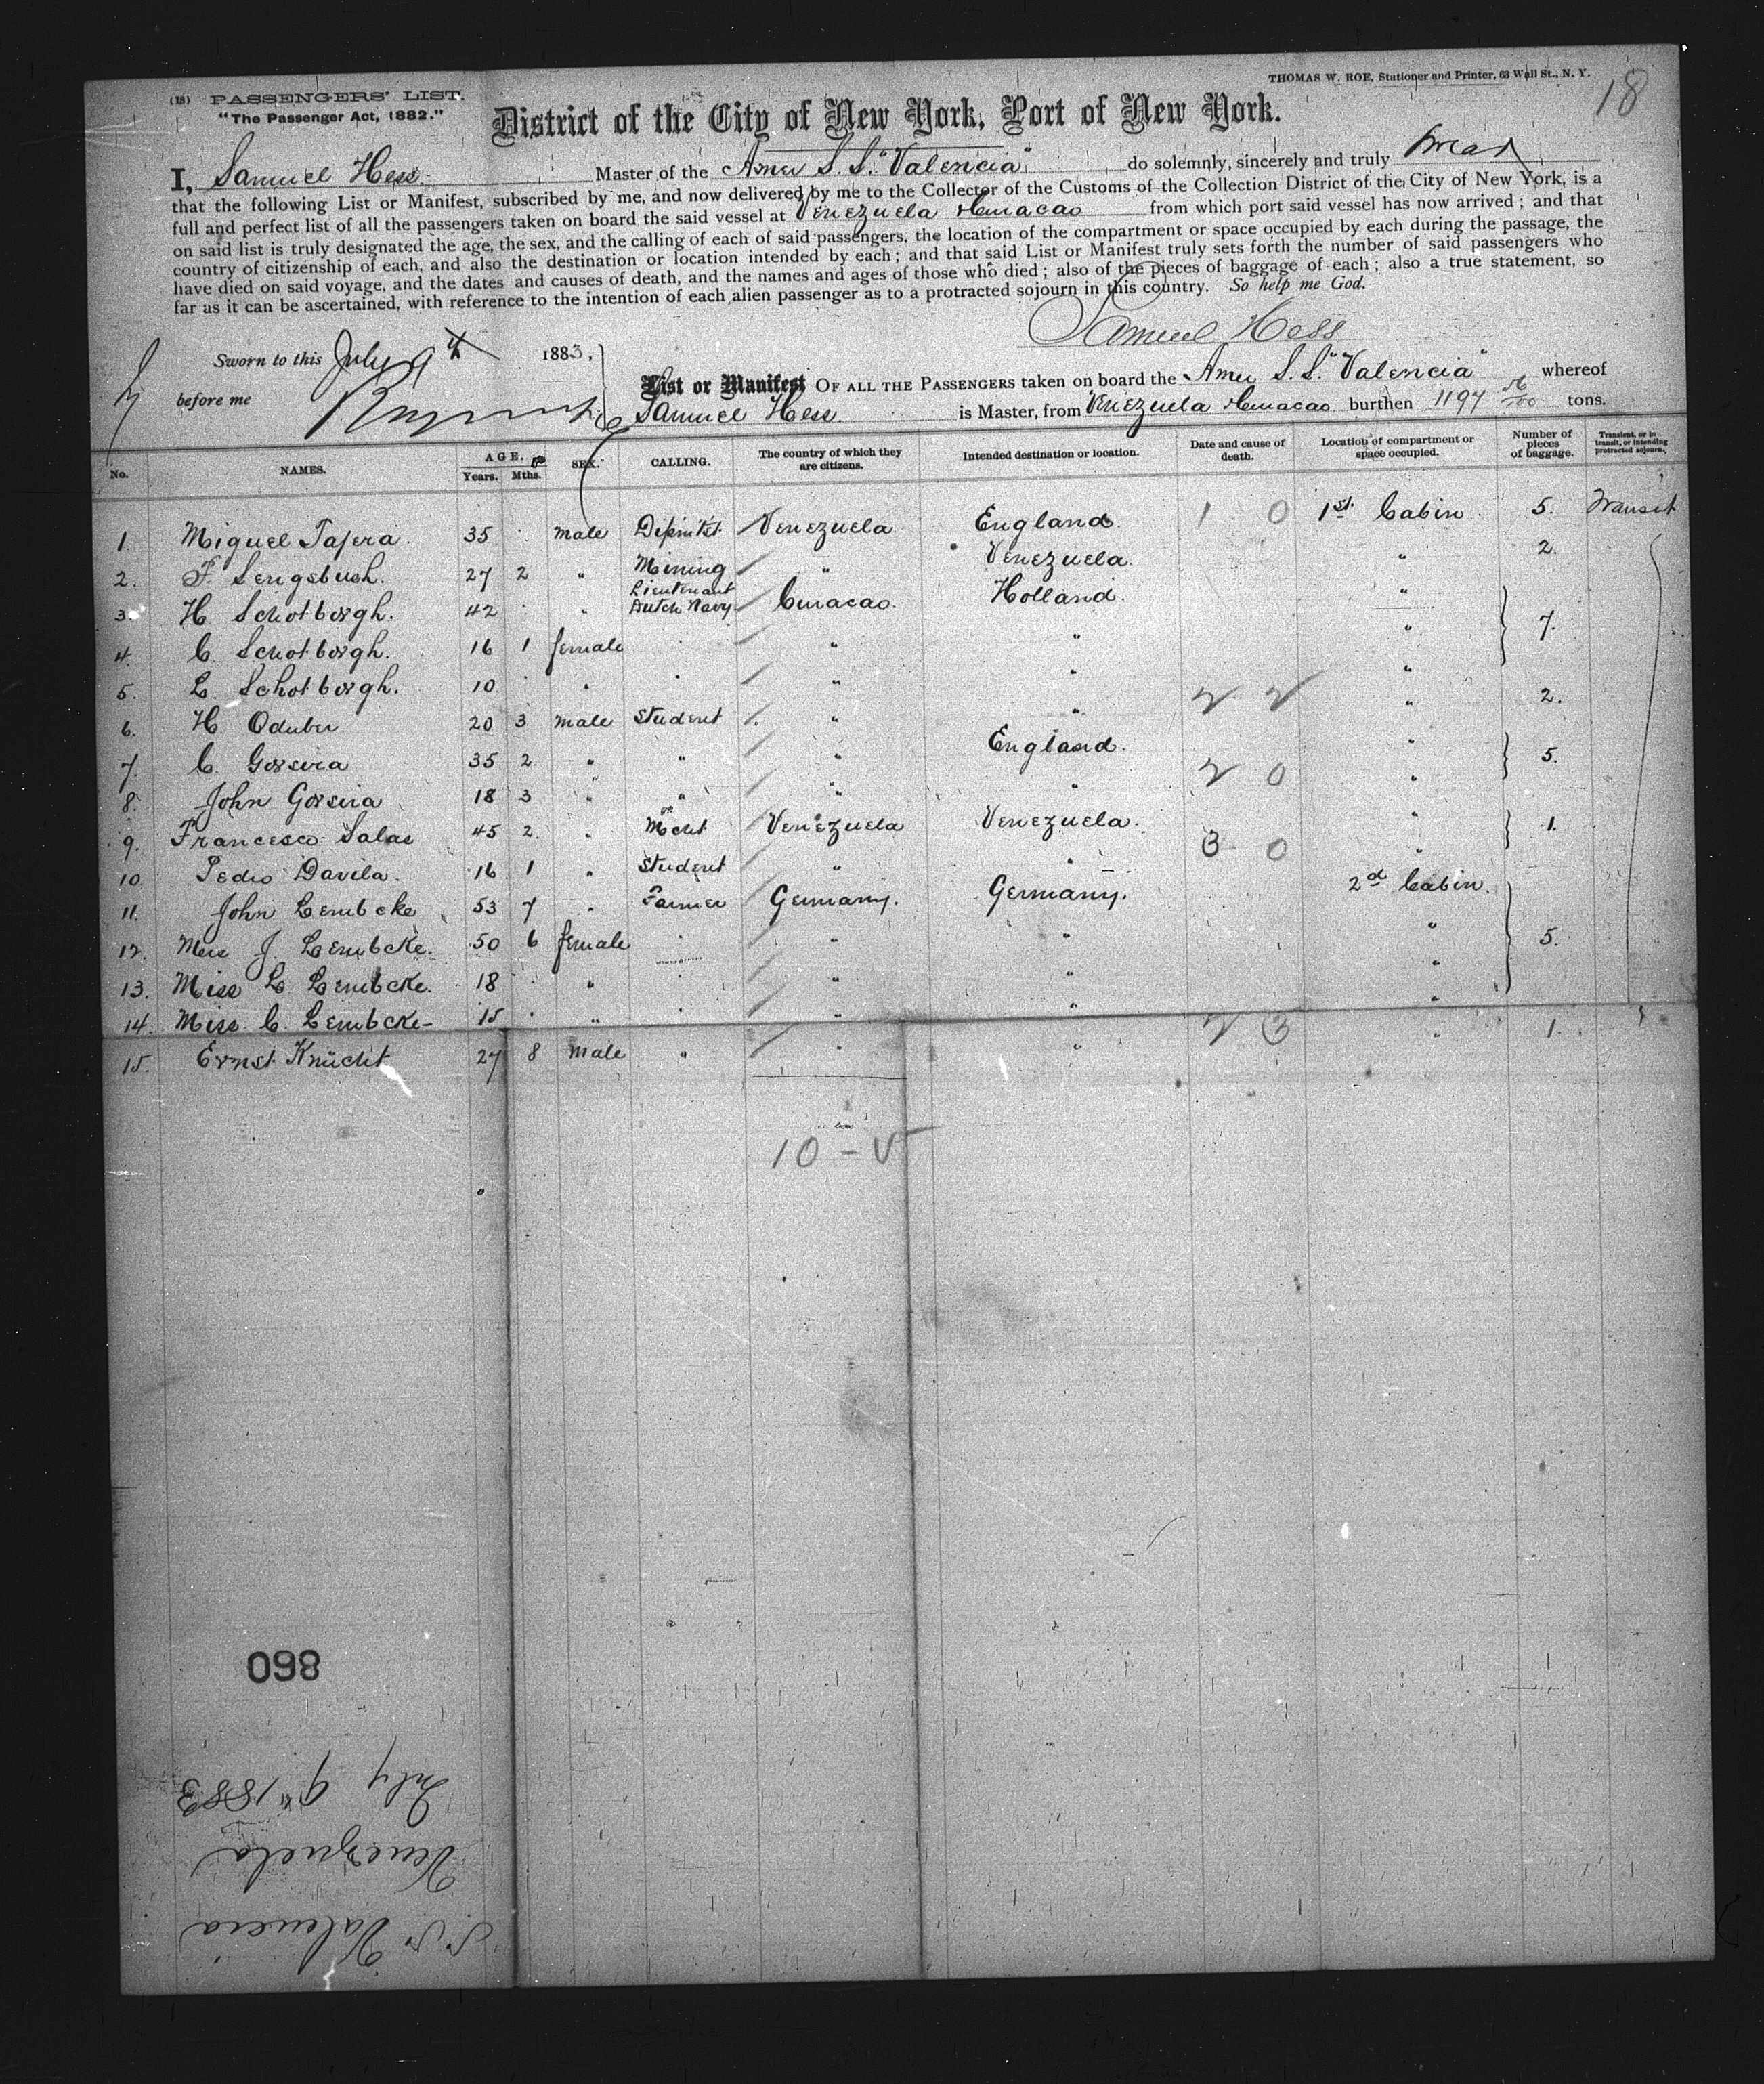 THOMAS W. ROE, Stationer and Printer, 63 Wall St., N. Y.
18
(18) PASSENGERS' LIST.
"The Passenger Act, 1882."
District of the City of New York, Port of New York.
I, Samuel Hess Master of the Amer S. S. "Valencia" do solemnly, sincerely and truly swear
that the following List or Manifest, subscribed by me, and now delivered by me to the Collector of the Customs of the Collection District of the City of New York, is a
full and perfect list of all the passengers taken on board the said vessel at Venezuela & Curacao from which port said vessel has now arrived; and that
on said list is truly designated the age, the sex, and the calling of each of said passengers, the location of the compartment or space occupied by each during the passage, the
country of citizenship of each, and also the destination or location intended by each; and that said List or Manifest truly sets forth the number of said passengers who
have died on said voyage, and the dates and causes of death, and the names and ages of those who died; also of the pieces of baggage of each; also a true statement, so
far as it can be ascertained, with reference to the intention of each alien passenger as to a protracted sojourn in this country. So help me God.
Samuel Hess
Sworn to this July 9th 1883,
before me
List or Manifest OF ALL THE PASSENGERS taken on board the Amer S. S. "Valencia" whereof
Samuel Hess is Master, from Venezuela & Curacao burthen 1197 tons.
No. NAMES. AGE. Years. Mths. SEX. CALLING. The country of which they are citizens. Intended destination or location. Date and cause of death. Location of compartment or space occupied. Number of pieces of baggage. Transient, or in transit, or intending protracted sojourn.
1. Miguel Tajera. 35 male Venezuela England. 1 0 1st Cabin 5. Transit
2. F. Sengebush. 27 2 " Mining " Venezuela. " 2.
3. H Schotborgh. 42 " Lieutenant Dutch Navy Curacao. Holland. "
4. C. Schotborgh. 16 1 female " " " 7.
5. L. Schotborgh. 10 " " " "
6. H Oduber 20 3 male Student " " 2 2 " 2.
7. C. Gorsira 35 2 " " " England. " 5.
8. John Gorsira 18 3 " " " " 2 0 "
9. Francesco Salas 45 2 " Mcht Venezuela Venezuela. " 1.
10 Pedro Davila. 16 1 " Student " " 3 0 "
11. John Lembcke 53 7 " Farmer Germany. Germany. 2nd Cabin.
12. Mrs J. Lembcke. 50 6 female " " " 5.
13. Miss L Lembcke. 18 " " " "
14. Miss C. Lembcke 15 " " " "
15. Ernst Knücht 27 8 Male " " " 2 3 " 1.
10 - V
860
July 9th 1883
Venezuela
S. S. Valencia